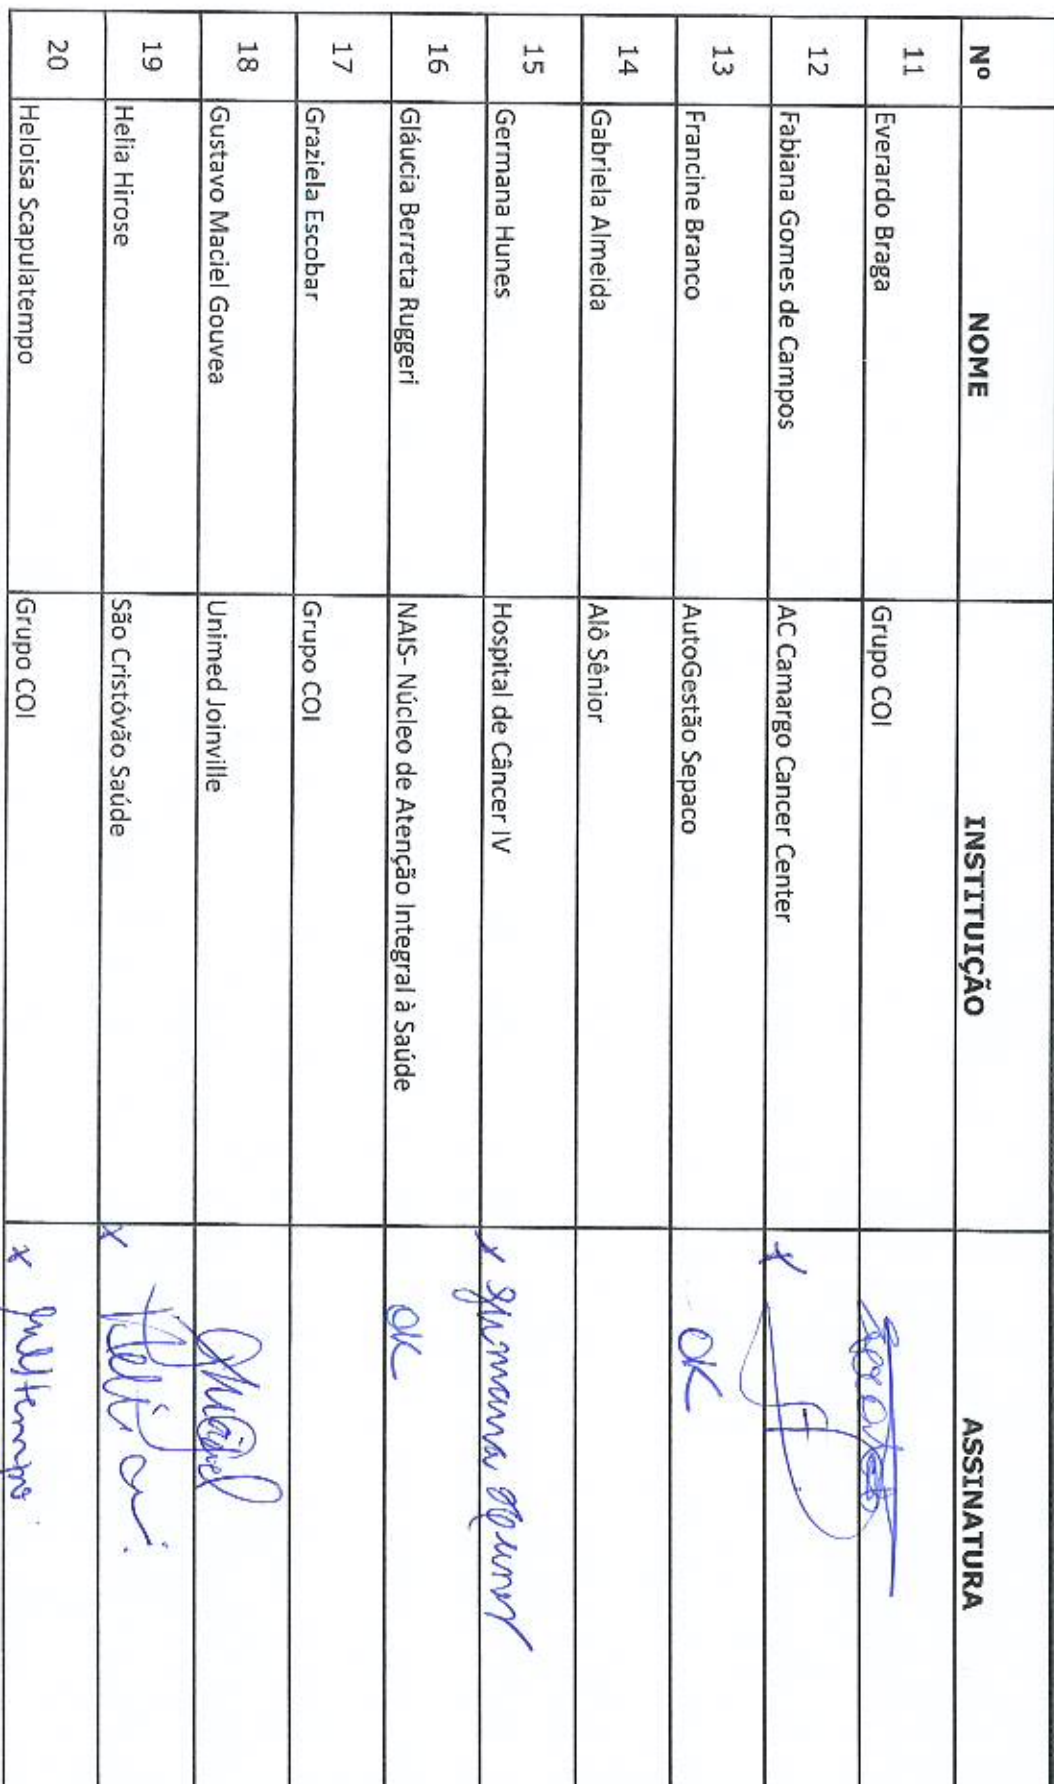 Nº NOME INSTITUIÇÃO ASSINATURA
11 Everardo Braga Grupo COI
12 Fabiana Gomes de Campos AC Camargo Cancer Center x
13 Francine Branco AutoGestão Sepaco OK
14 Gabriela Almeida Alô Sênior
15 Germana Hunes Hospital de Câncer IV x Germana Hunes
16 Gláucia Berreta Ruggeri NAIS- Núcleo de Atenção Integral à Saúde OK
17 Graziela Escobar Grupo COI
18 Gustavo Maciel Gouvea Unimed Joinville
19 Helia Hirose São Cristóvão Saúde x
20 Heloisa Scapulatempo Grupo COI x